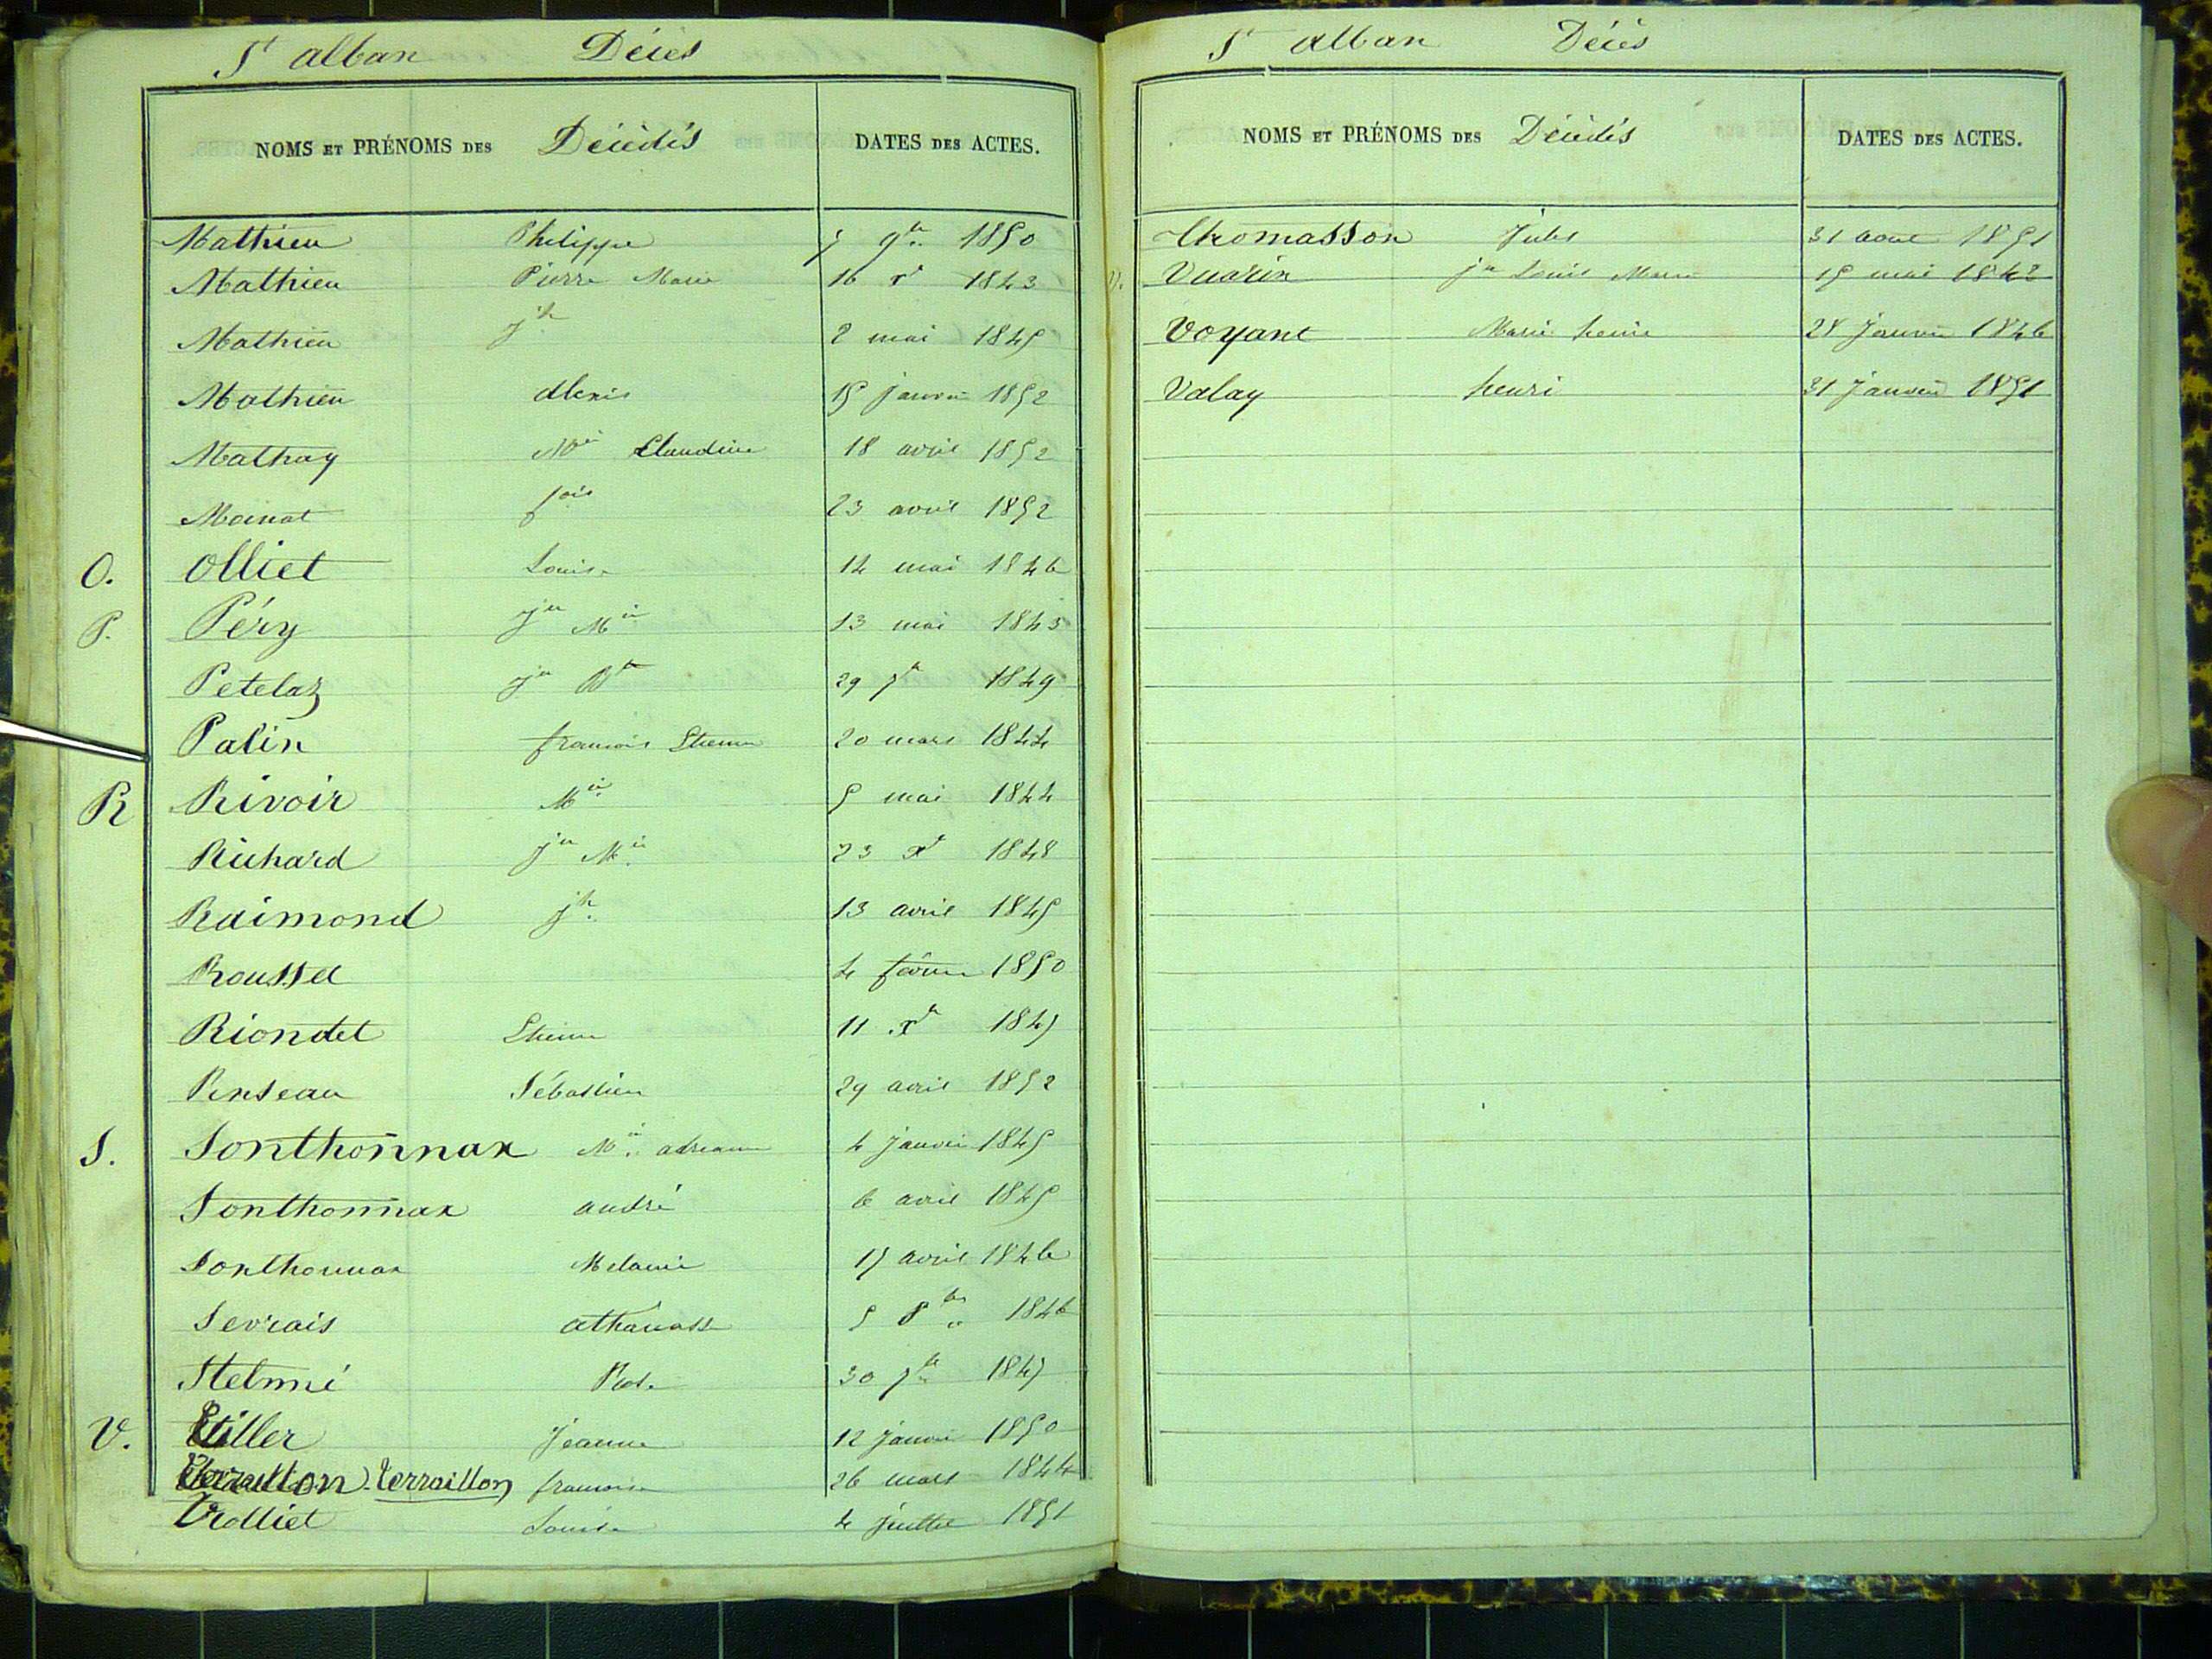 St alban Décès
NOMS ET PRÉNOMS DES Décédés DATES DES ACTES.
Mathieu Philippe 5 9bre 1850
Mathieu Pierre Marie 16 Xe 1843
Mathieu jh 2 mai 1845
Mathieu alexis 15 janvier 1852
Mathay Mie Claudine 18 avril 1852
Moinat fois 23 avril 1852
O. Olliet Louise 14 mai 1846
P. Péry jn Mie 13 mai 1845
Petelaz jn Bte 29 7bre 1849
Palin francois Etienne 20 mars 1844
R Rivoir Mie 5 mai 1844
Richard jn Mie 23 Xe 1848
Raimond jh 13 avril 1845
Roussel 4 février 1850
Riondet Etienne 11 Xe 1847
Renseau Sébastien 29 avril 1852
S. Sonthonnax Mie adrienne 4 janvier 1845
Sonthonnax andré 6 avril 1845
Sonthonnax Melanie 17 avril 1846
Sevrais athanasse 5 8bre 1846
Stelmié Rose 30 7bre 1847
V. Tiller Jeanne 12 janvier 1850
Terraillon francoise 26 mars 1844
Trolliet Louise 4 juillet 1851
St alban Décès
NOMS ET PRÉNOMS DES Décédés DATES DES ACTES.
Thomasson Jules 31 aout 1851
V. Vuarin jn Louis Marie 15 mai 1842
Voyant Marie henie 28 Janvier 1846
Valay henri 31 Janvier 1851